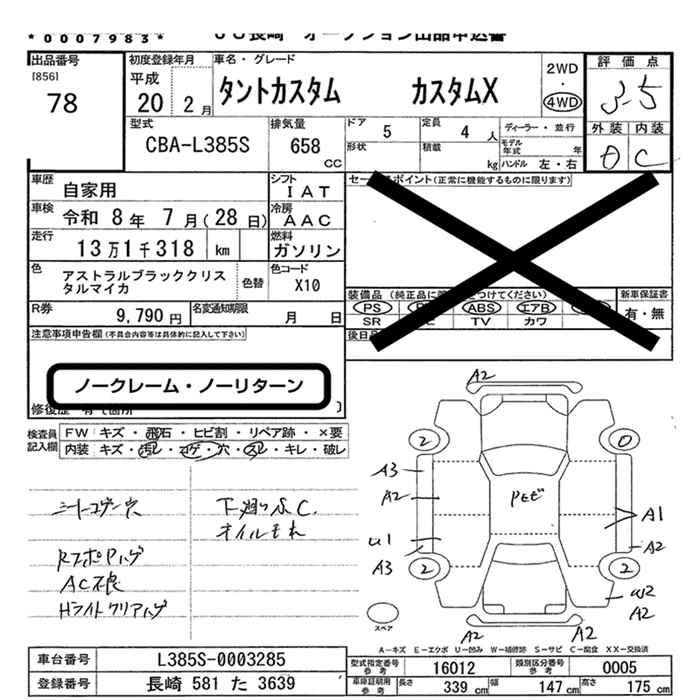 *0007983*
JU長崎 オークション出品申込書
出品番号
[856]
78
初度登録年月
平成
20 2月
車名・グレード
タントカスタム カスタムX
2WD
・
4WD
評価点
3.5
外装 内装
D C
型式
CBA-L385S
排気量
658
CC
ドア 5
定員 4 人
ディーラー・並行
形状
積載 kg
モデル年式 年
ハンドル 左・右
車歴 自家用
シフト IAT
車検 令和 8年 7月(28日)
冷房 AAC
走行 13万1千318 km
燃料 ガソリン
色 アストラルブラッククリスタルマイカ
色替
色コード X10
R券 9,790円
名変通知期限 月 日
セールスポイント(正常に機能するものに限ります)
装備品
PS ABS エアB
SR TV カワ
新車保証書
有・無
注意事項申告欄(不具合内容等は具体的に記入して下さい)
ノークレーム・ノーリターン
検査員記入欄
FW キズ・飛石・ヒビ割・リペア跡・×要
内装 キズ・汚レ・コゲ・穴・スレ・キレ・破レ
シートコゲ穴
下廻りS.C.
オイルモレ
RスポPハゲ
AC不良
Hライトクリアハゲ
A2
2
A3
A2
A3
2
Pモビ
A1
A2
2
W2
A2
A2
A2
スペア
A-キズ E-エクボ U-凹み W-補修跡 S-サビ C-腐食 XX-交換済
車台番号 L385S-0003285
登録番号 長崎 581 た 3639
型式指定番号 参考 16012
類別区分番号 参考 0005
車庫証明用 参考 長さ 339cm 幅 147cm 高さ 175cm